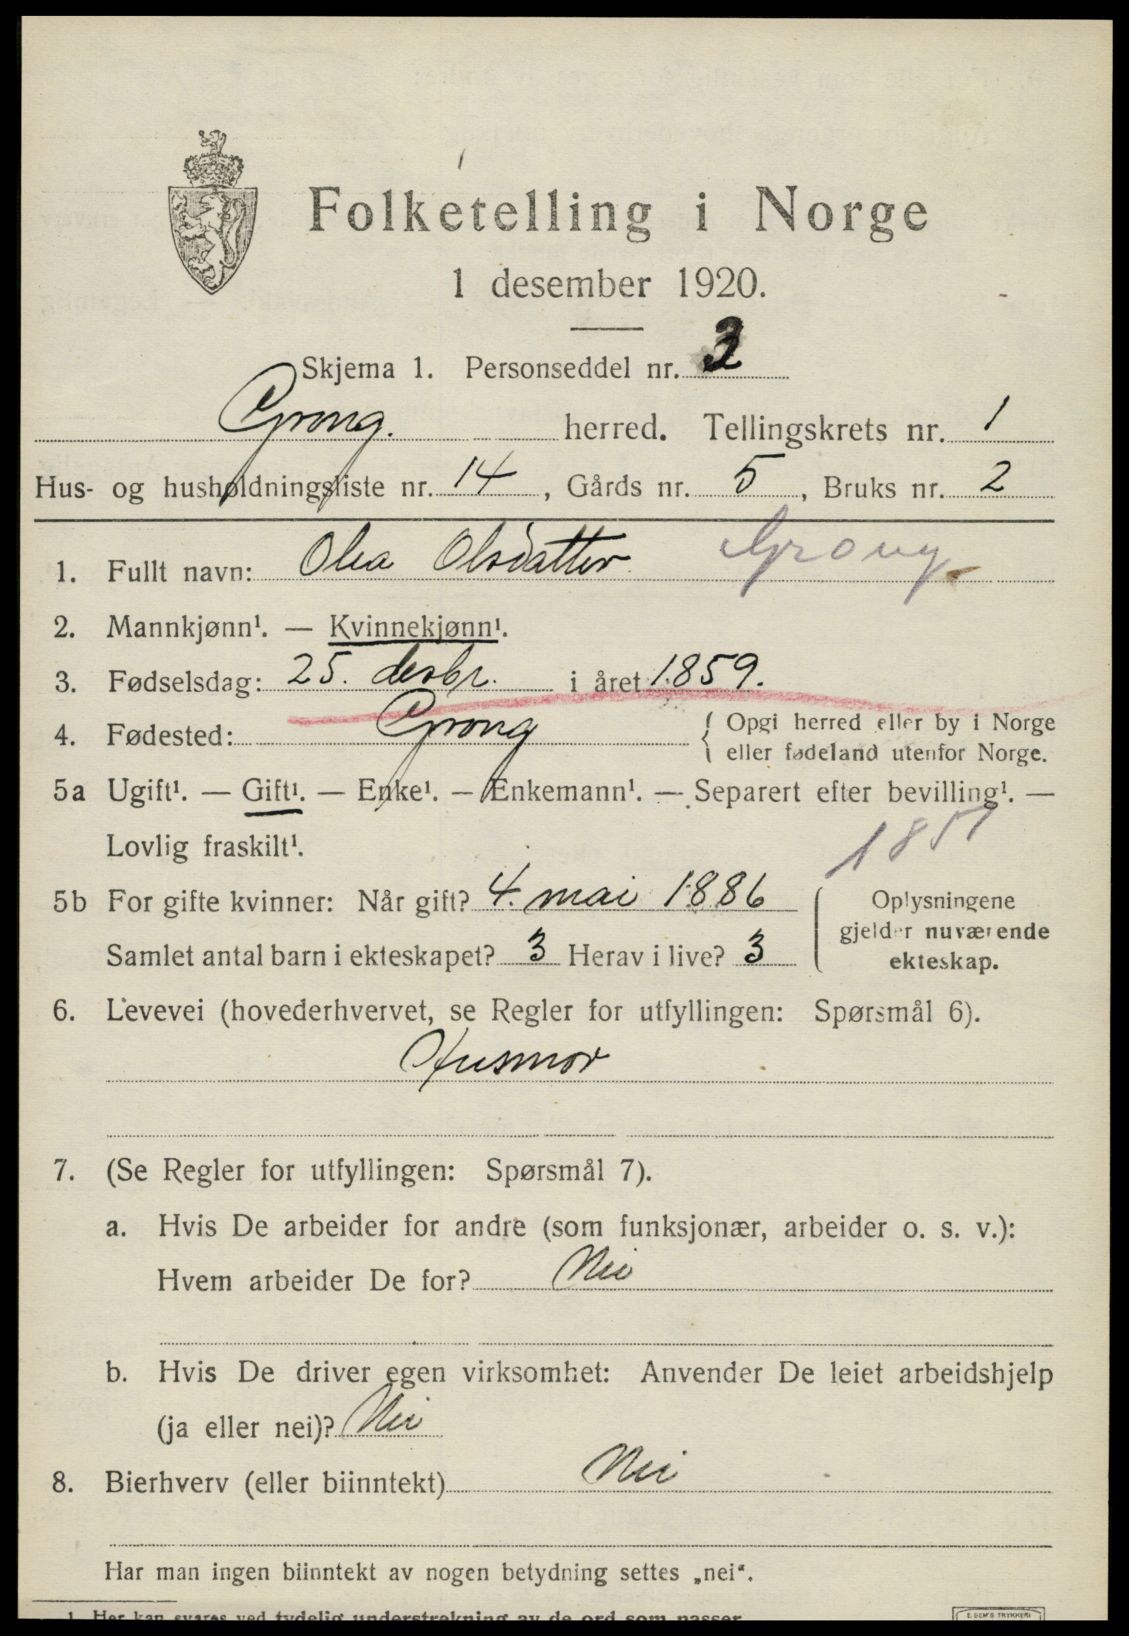 Folketelling i Norge
1 desember 1920.
Skjema 1. Personseddel nr. 3
Grong. herred. Tellingskrets nr. 1
Hus- og husholdningsliste nr. 14, Gårds nr. 5, Bruks nr. 2
1. Fullt navn: Olea Olsdatter Grong
2. Mannkjønn¹. — Kvinnekjønn¹.
3. Fødselsdag: 25. desbr. i året 1859.
4. Fødested: Grong { Opgi herred eller by i Norge
eller fødeland utenfor Norge.
5a Ugift¹. — Gift¹. — Enke¹. — Enkemann¹. — Separert efter bevilling¹. —
Lovlig fraskilt¹.
5b For gifte kvinner: Når gift? 4. mai 1886
Samlet antal barn i ekteskapet? 3 Herav i live? 3
Oplysningene
gjelder nuværende
ekteskap.
6. Levevei (hovederhvervet, se Regler for utfyllingen: Spørsmål 6).
Husmor
7. (Se Regler for utfyllingen: Spørsmål 7).
a. Hvis De arbeider for andre (som funksjonær, arbeider o. s. v.):
Hvem arbeider De for? Nei
b. Hvis De driver egen virksomhet: Anvender De leiet arbeidshjelp
(ja eller nei)? Nei
8. Bierhverv (eller biinntekt) Nei
Har man ingen biinntekt av nogen betydning settes „nei“.
1 Her kan svares ved tydelig understrekning av de ord som passer